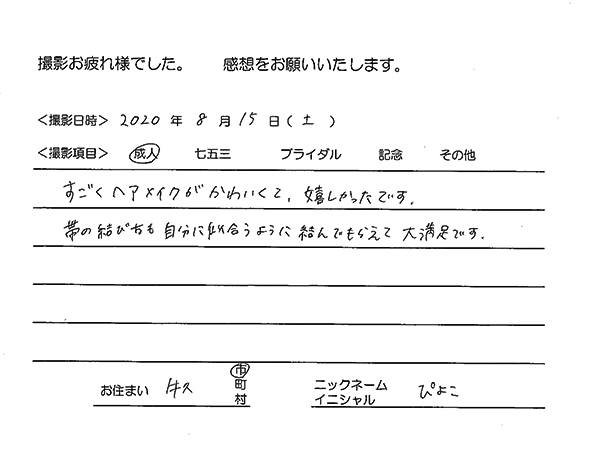 撮影お疲れ様でした。 感想をお願いいたします。
<撮影日時> 2020 年 8 月 15 日 ( 土 )
<撮影項目> 成人 七五三 ブライダル 記念 その他
すごくヘアメイクがかわいくて、嬉しかったです.
帯の結び方も自分に似合うように結んでもらえて大満足です.
お住まい 牛久 市 町 村 ニックネーム イニシャル ぴよこ